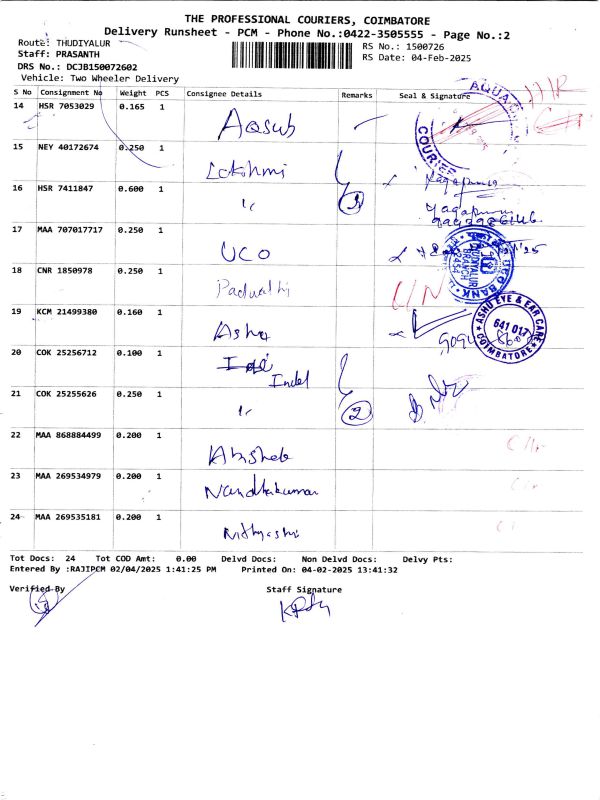 THE PROFESSIONAL COURIERS, COIMBATORE
Delivery Runsheet - PCM - Phone No.:0422-3505555 - Page No.:2
Route: THUDIYALUR RS No.: 1500726
Staff: PRASANTH RS Date: 04-Feb-2025
DRS No.: DCJB150072602
Vehicle: Two Wheeler Delivery
S No Consignment No Weight PCS Consignee Details Remarks Seal & Signature
14 HSR 7053029 0.165 1 AQUA COURIER
15 NEY 40172674 0.250 1 Lakshmi
16 HSR 7411847 0.600 1
17 MAA 707017717 0.250 1 UCO UCO BANK THUDIYALUR BRANCH
18 CNR 1850978 0.250 1
19 KCM 21499380 0.160 1 Ashu ASHU EYE & EAR CARE 641 017 COIMBATORE
20 COK 25256712 0.100 1 Indel
21 COK 25255626 0.250 1 2
22 MAA 868884499 0.200 1
23 MAA 269534979 0.200 1 Nandhakumar
24 MAA 269535181 0.200 1
Tot Docs: 24 Tot COD Amt: 0.00 Delvd Docs: Non Delvd Docs: Delvy Pts:
Entered By :RAJIPCM 02/04/2025 1:41:25 PM Printed On: 04-02-2025 13:41:32
Verified By Staff Signature